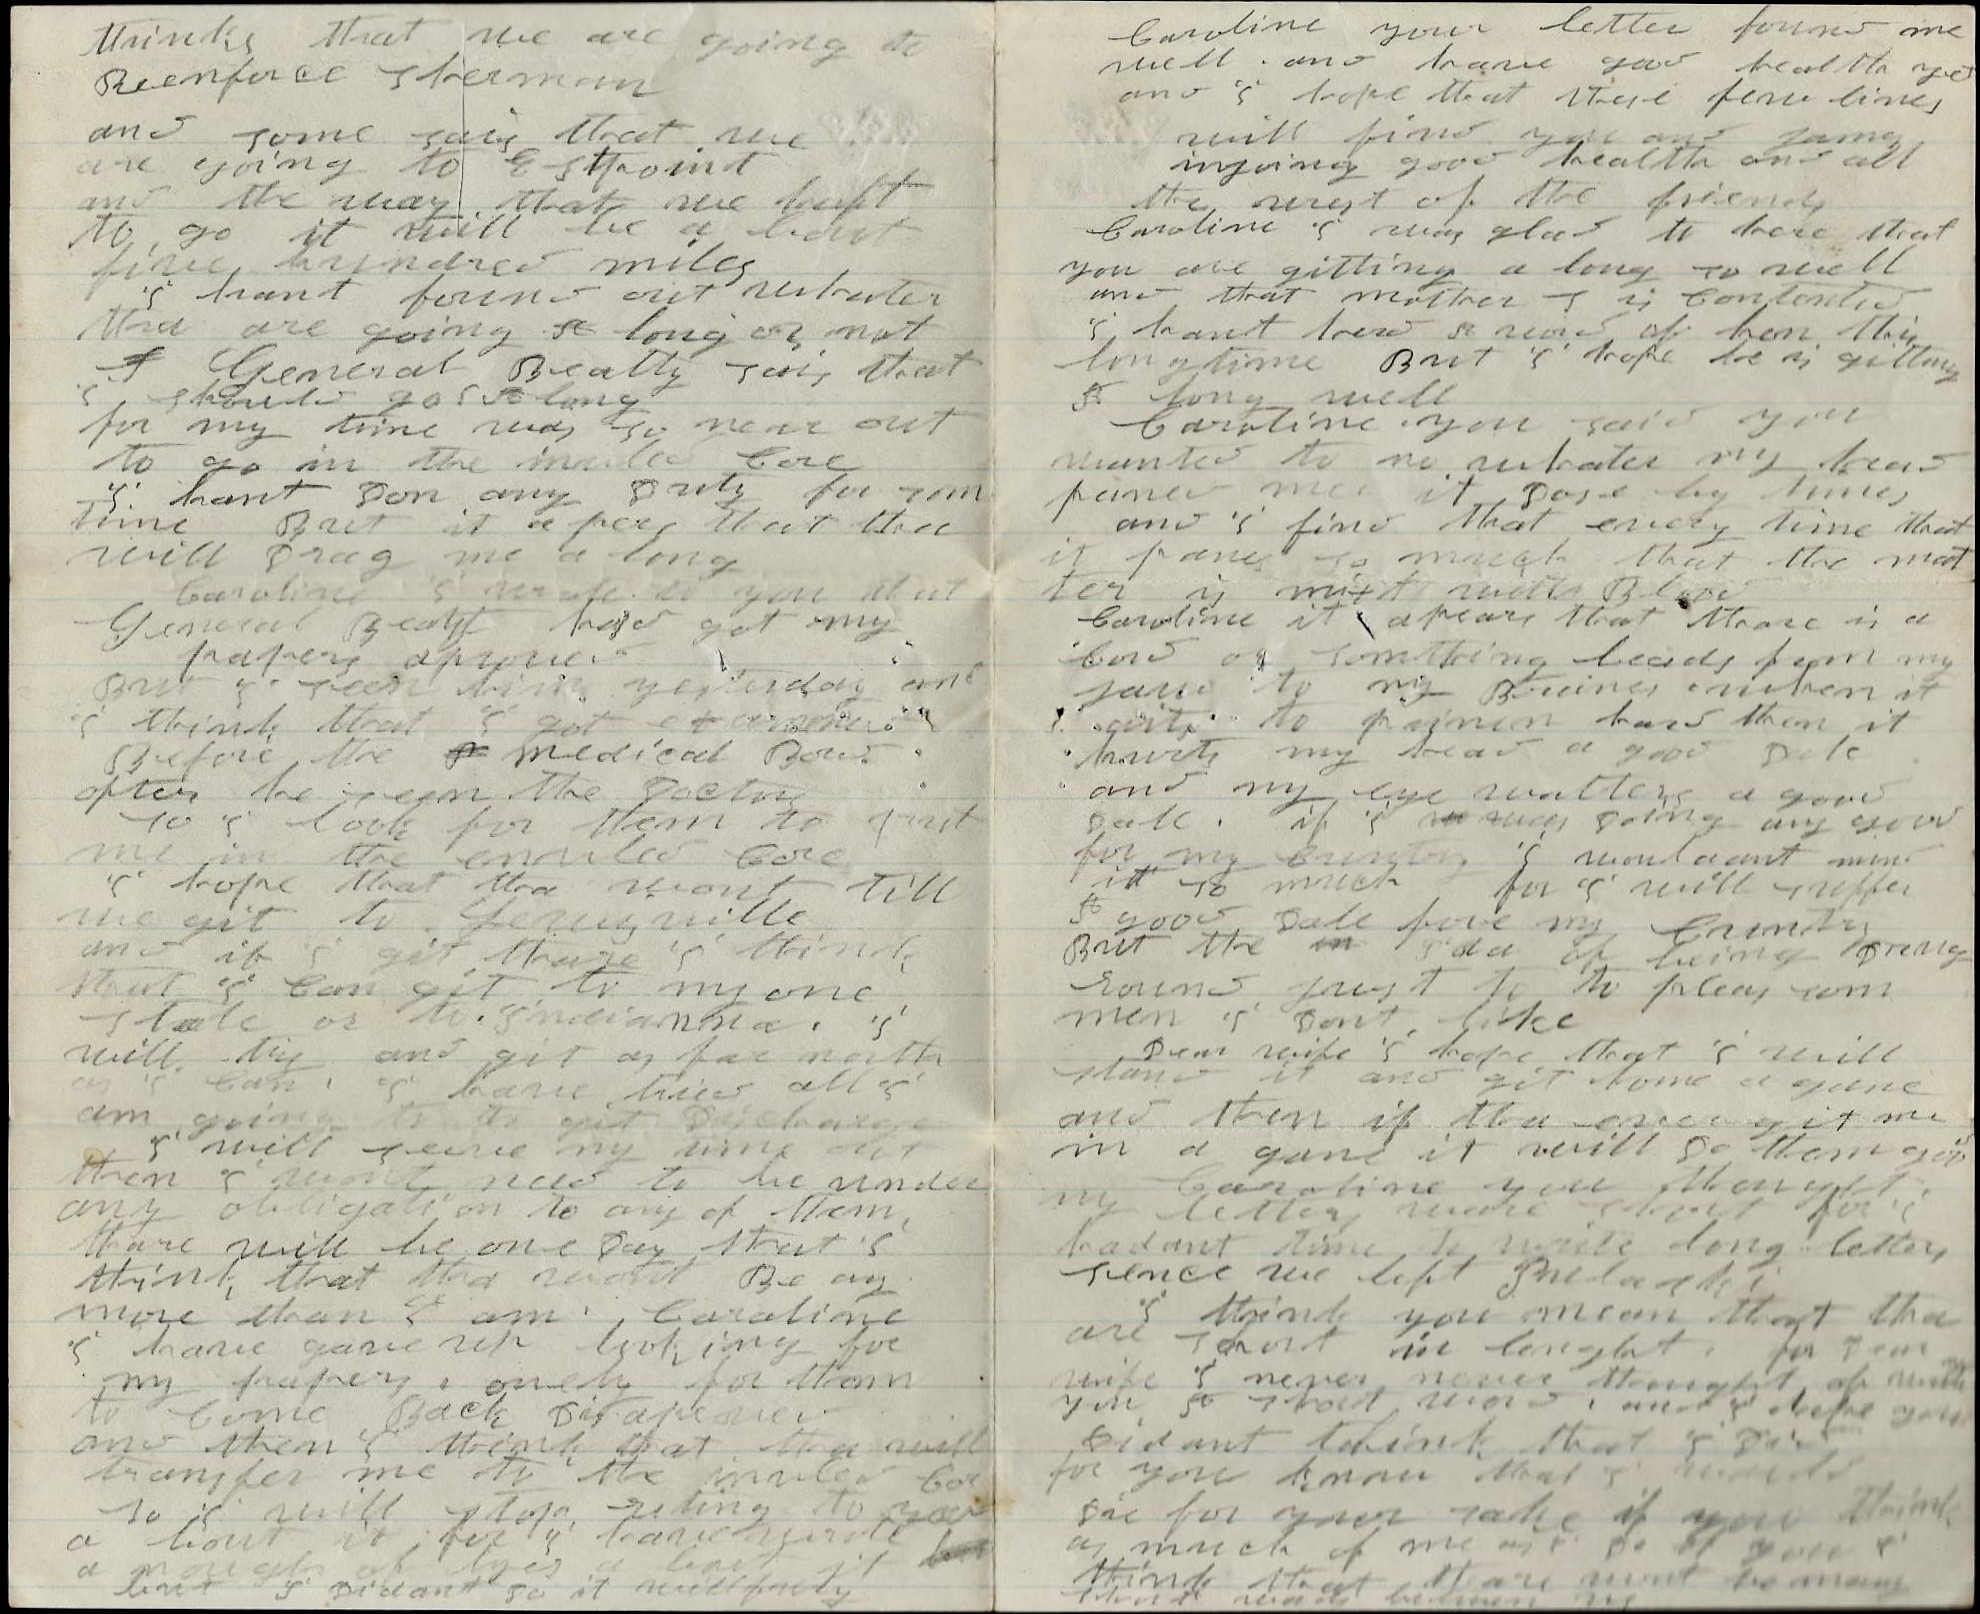 thinks that we are going to
Reenforce Sherman
and some sais that we
are going to Estpoint
and the way that we haft
to go it will be a bout
five hundred miles
I hant found out wheather
tha are going a long or not
General Beatty sais that
I should go a long
for my time was so near out
to go in the invaled Core
I hant Don any Duty for som
time But it apers that tha
will Drag me a long
Caroline I wrote to you that
General Beatty had got my
papers aproved
But I seen him yesterday and
I think that I got examened
Before the medical Bord
after he seen the Doctor
so I look for them to put
me in the envaled Core
I hope that tha wont till
we git to
and if I git thare I think
that I Can git to my one
state or to Indianna. I
will try and git as far north
as I Can. I have tried all I
am going to to git Discharge
I will serve my time out
then I wont need to be under
any obligation to any of them,
thare will be one Day that I
think that tha wont Be any
more than I am. Caroline
I have gave up looking for
my papers. onely for tham
to Come Back Disaproved
and then I think that tha will
transfer me to the invaled Cor
so I will stop riting to you
a bout it for I have wrote
a nough of lyes a bout it
but I Didant do it willfuly
Caroline your letter found me
well. and have good health yet
and I hope that these few lines
will find you and
injoying good health and all
the rest of the friends
Caroline I was glad to here that
you are gitting a long so well
and that mother S is Contented
I hant herd a word of hen this
longtime But I hope he is gitting
a long well
Caroline you said you
wanted to no wheater my head
paned mee it Dose by times
and I find that every time that
it panes so much that the mat
ter is mixt with Blood
Caroline it apears that thare is a
Cord or something leads from my
jaw to my Braines. when it
gits to painen hard then it
hurts my head a good Dele
and my eye watters a good
Dale. if I was Doing any good
for my Cuntry I wouldant mind
it so much for I will suffer
a good Dale fore my Cuntry
But the Ida of being Drug
Round just to to pleas som
men I Dont like
Dear wife I hope that I will
stand it and git home a gane
and then if tha ever git me
in a gane it will Do them good
Caroline you thought
my letters ware short for I
hadant time to write long letters
sence we left Pulaski
I think you mean that tha
are short in lenght. for Dear
wife I never never thought of
you a short word. and I hope you
Didant think that I Did
for you know that I would
Die for your sake if you think
as much of me as I Do of you I
think that thare wont be many
short words between us